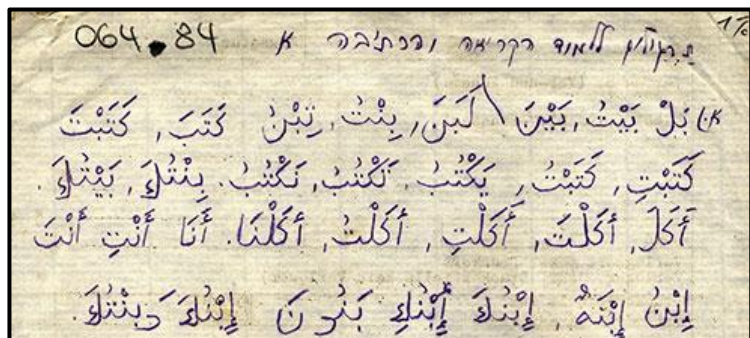 תרגילים ללמוד הקריאה והכתיבה א 064.84
א) بَلْ بَيْتُ, بَيْنَ \ لَبَنَ, بِنْتُ, تِبْنُ كَتَبَ, كَتَبْتَ
كَتَبْتِ, كَتَبْتُ, يَكْتُبُ, تَكْتُبُ, نَكْتُبُ. بِنْتُكَ, بَيْتُكَ.
أَكَلَ, أَكَلْتَ, أَكَلْتِ, أَكَلْتُ, أَكَلْنَا. أَنَا أَنْتِ أَنْتَ
إِبْنُ إِبْنَهُ, إِبْنُكَ إِبْنُكِ بَنُونَ إِبْنُكَ وَبِنْتُكَ.